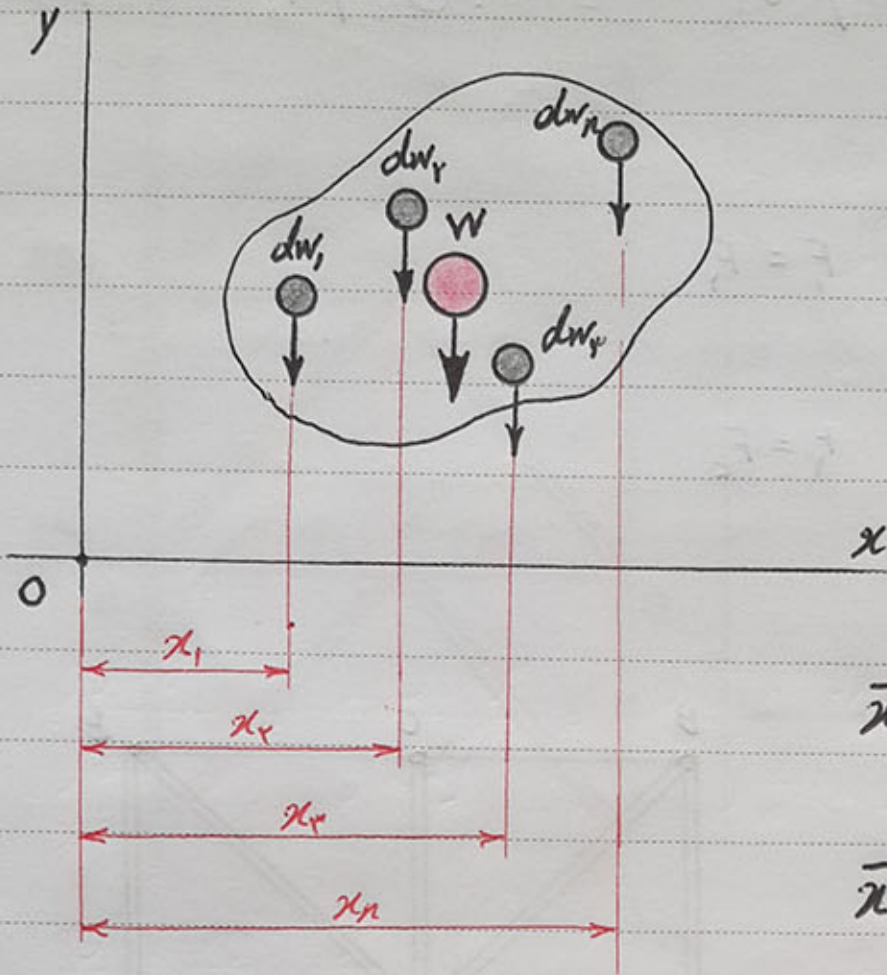 y
dwn
dw۲
w
dw۱
dw۳
x
O
x۱
x̄
x۲
x۳
x̄
xn